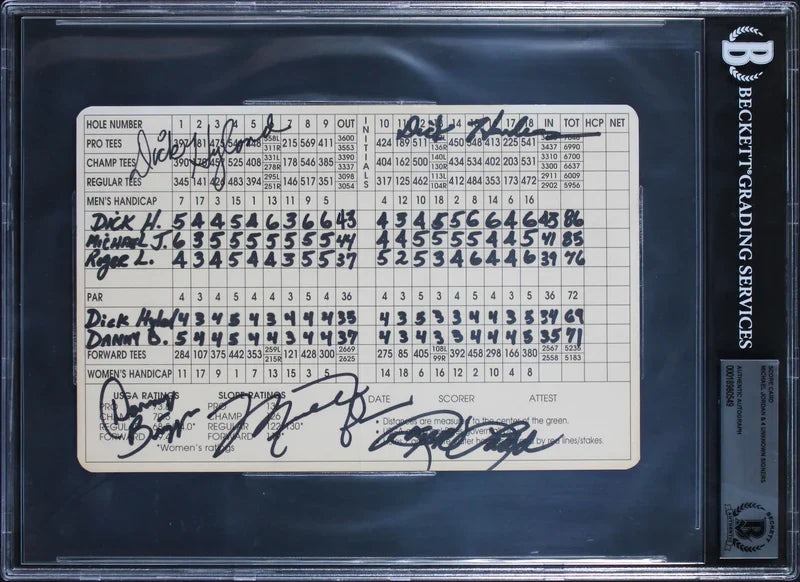 HOLE NUMBER 1 2 3 4 5 6 7 8 9 OUT INITIALS 10 11 12 13 14 15 16 17 18 IN TOT HCP NET
PRO TEES 215 569 411 3600 3533 424 189 511 136R 450 548 413 225 541 3437 6990
CHAMP TEES 390 525 408 331L 278R 178 546 385 3390 3337 404 162 500 140L 130R 434 534 402 203 531 3310 3300 6700 6637
REGULAR TEES 345 141 426 483 394 295L 251R 146 517 351 3098 3054 317 125 462 113L 104R 412 484 353 173 472 2911 2902 6009 5956
MEN'S HANDICAP 7 17 3 15 1 13 11 9 5 4 12 10 18 2 8 14 6 16
DICK H. 5 4 4 5 4 6 3 6 6 43 4 3 4 5 5 6 6 4 6 43 86
MICHAEL J. 6 3 5 5 5 5 5 5 5 44 4 4 5 5 5 5 4 4 5 41 85
Roger L. 4 3 4 5 4 4 3 5 5 37 5 2 5 3 4 6 4 4 6 39 76
PAR 4 3 4 5 4 4 3 5 4 36 4 3 5 3 4 5 4 3 5 36 72
Dick Hyland 4 3 4 5 4 3 4 4 4 35 4 3 5 3 3 4 4 3 5 34 69
DANNY B. 5 4 4 5 4 4 3 4 4 37 4 3 4 3 4 4 4 4 5 35 71
FORWARD TEES 284 107 375 442 353 259L 215R 121 428 300 2669 2625 275 85 405 108L 99R 392 458 298 166 380 2567 2558 5236 5183
WOMEN'S HANDICAP 11 17 9 1 7 13 15 3 5 14 18 6 16 12 2 10 4 8
Dick Hyland
USGA RATINGS SLOPE RATINGS DATE SCORER ATTEST
PRO PRO
CHAMP CHAMP
REGULAR REGULAR
FORWARD FORWARD
• Distances are measured to the center of the green.
by red lines/stakes.
*Women's ratings
B
BECKETT GRADING SERVICES
SCORE CARD
MICHAEL JORDAN & 4 UNKNOWN SIGNERS
AUTHENTIC AUTOGRAPH
00018980549
BECKETT
AUTHENTICATED